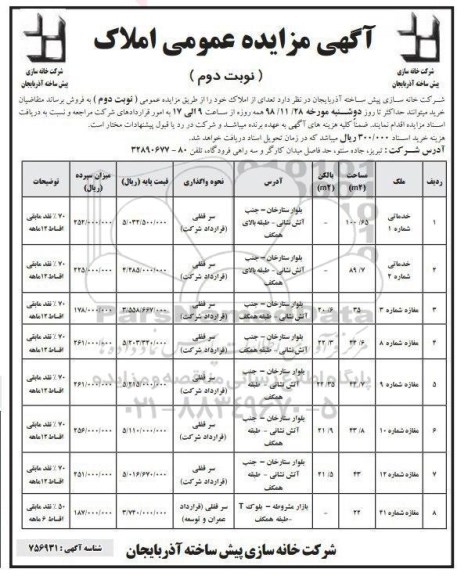 آگهی مزایده عمومی املاک
( نوبت دوم )
شرکت خانه سازی
پیش ساخته آذربایجان
شرکت خانه سازی
پیش ساخته آذربایجان
شرکت خانه سازی پیش ساخته آذربایجان در نظر دارد تعدای از املاک خود را از طریق مزایده عمومی ( نوبت دوم ) به فروش برساند متقاضیان
خرید میتوانند حداکثر تا روز دوشنبه مورخه ۹۸/۱۱/۲۸ همه روزه از ساعت ۹ الی ۱۷ به امور قراردادهای شرکت مراجعه و نسبت به دریافت
اسناد مزایده اقدام نمایند. ضمناً کلیه هزینه های آگهی به عهده برنده میباشد و شرکت در رد یا قبول پیشنهادات مختار است.
هزینه خرید اسناد ۳۰۰/۰۰۰ ریال میباشد که در زمان تحویل اسناد دریافت خواهد شد.
آدرس شرکت : تبریز، جاده سنتو، حد فاصل میدان کارگر و سه راهی فرودگاه، تلفن ۸۰ - ۳۲۸۹۰۶۷۷
ردیف ملک مساحت (m۲) بالکن (m۲) آدرس نحوه واگذاری قیمت پایه (ریال) میزان سپرده (ریال) توضیحات
۱ خدماتی شماره ۱ ۱۰۰/۶۵ - بلوار ستارخان – جنب آتش نشانی - طبقه بالای همکف سر قفلی (قرارداد شرکت) ۵/۰۳۲/۵۰۰/۰۰۰ ۲۵۲/۰۰۰/۰۰۰ ۷۰٪ نقد مابقی اقساط ۱۲ماهه
۲ خدماتی شماره ۲ ۸۹/۷ - بلوار ستارخان – جنب آتش نشانی - طبقه بالای همکف سر قفلی (قرارداد شرکت) ۴/۴۸۵/۰۰۰/۰۰۰ ۲۲۵/۰۰۰/۰۰۰ ۷۰٪ نقد مابقی اقساط ۱۲ماهه
۳ مغازه شماره ۳ ۳۵ ۲۰/۶ بلوار ستارخان – جنب آتش نشانی - طبقه همکف سر قفلی (قرارداد شرکت) ۳/۵۵۸/۶۶۷/۰۰۰ ۱۷۸/۰۰۰/۰۰۰ ۷۰٪ نقد مابقی اقساط ۱۲ماهه
۴ مغازه شماره ۸ ۲۲/۳ بلوار ستارخان – جنب آتش نشانی - طبقه همکف سر قفلی (قرارداد شرکت) ۵/۲۰۳/۳۳۰/۰۰۰ ۲۶۱/۰۰۰/۰۰۰ ۷۰٪ نقد مابقی اقساط ۱۲ماهه
۵ مغازه شماره ۹ بلوار ستارخان – جنب آتش نشانی - طبقه همکف سر قفلی (قرارداد شرکت) ۲۶۱/۰۰۰/۰۰۰ ۷۰٪ نقد مابقی اقساط ۱۲ماهه
۶ مغازه شماره ۱۰ ۴۳/۸ ۲۱/۹ بلوار ستارخان – جنب آتش نشانی - طبقه همکف سر قفلی (قرارداد شرکت) ۵/۱۱۰/۰۰۰/۰۰۰ ۲۵۶/۰۰۰/۰۰۰ ۷۰٪ نقد مابقی اقساط ۱۲ماهه
۷ مغازه شماره ۱۲ ۴۳ ۲۱/۵ بلوار ستارخان – جنب آتش نشانی - طبقه همکف سر قفلی (قرارداد شرکت) ۵/۰۱۶/۶۷۰/۰۰۰ ۲۵۱/۰۰۰/۰۰۰ ۷۰٪ نقد مابقی اقساط ۱۲ماهه
۸ مغازه شماره ۲۱ ۲۲ - بازار مشروطه – بلوک T -طبقه همکف سر قفلی (قرارداد عمران و توسعه) ۳/۷۴۰/۰۰۰/۰۰۰ ۱۸۷/۰۰۰/۰۰۰ ۵۰٪ نقد مابقی اقساط ۶ ماهه
پایگاه اطلاع رسانی مناقصه و مزایده
۰۲۱-۸۸۳۴۹۶۷۰-۵
شرکت خانه سازی پیش ساخته آذربایجان
شناسه آگهی : ۷۵۶۹۳۱